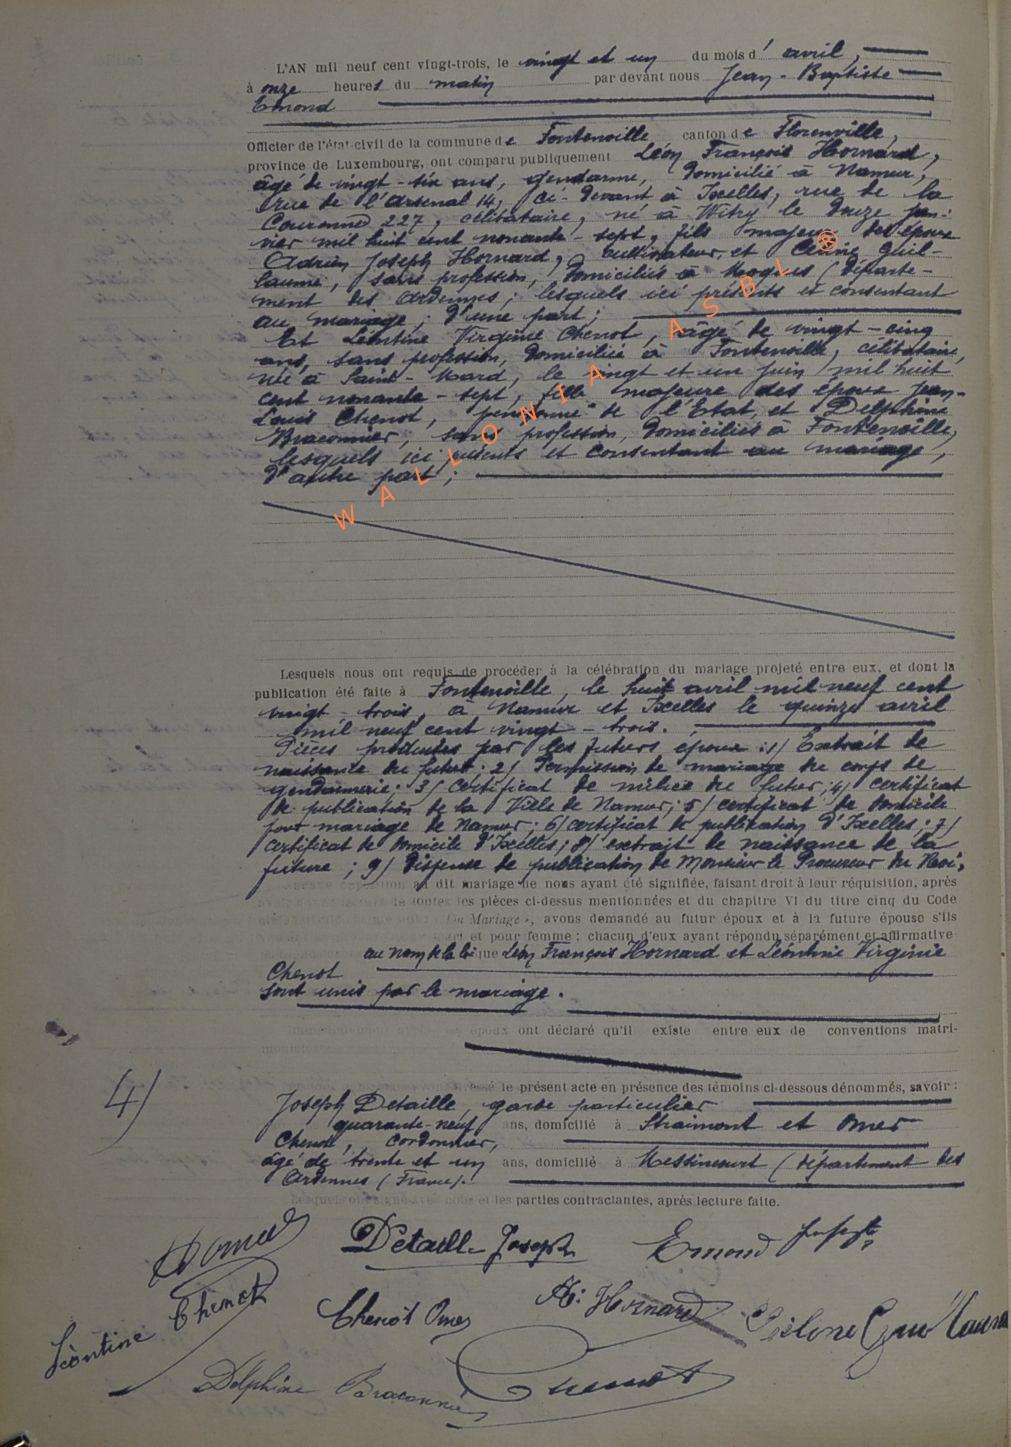 L'AN mil neuf cent vingt-trois, le vingt et un du mois d' avril,
à onze heures du matin par devant nous Jean-Baptiste
Emond
Officier de l'état-civil de la commune de Fontenoille canton de Florenville,
province de Luxembourg, ont comparu publiquement Léon François Hornard,
âgé de vingt-six ans, gendarme, domicilié à Namur,
rue de l'Arsenal 14, ci-devant à Ixelles, rue de la
Couronne 227, célibataire, né à Witry le douze jan-
vier mil huit cent nonante-sept, fils majeur des époux
Adrien Joseph Hornard, cultivateur, et Guil-
laume, sans profession, domiciliés à Mogues (départe-
ment des Ardennes, lesquels ici présents et consentant
au mariage; d'une part;
Et Léontine Virginie Chenot, âgé de vingt-cinq
ans, sans profession, domiciliée à Fontenoille, célibataire,
née à Saint-Mard, le vingt et un juin mil huit
cent nonante-sept, fille majeure des époux Jean-
Louis Chenot, pensionné de l'Etat, et Delphine
Braconnier, sans profession, domiciliés à Fontenoille,
lesquels ici présents et consentant au mariage,
d'autre part;
WALLONIA ASBL ®
Lesquels nous ont requis de procéder à la célébration du mariage projeté entre eux, et dont la
publication été faite à Fontenoille, le huit avril mil neuf cent
vingt-trois, à Namur et Ixelles le quinze avril
mil neuf cent vingt-trois.
Pièces produites par les futurs époux: 1/ Extrait de
naissance du futur. 2/ Permission de mariage du corps de
gendarmerie; 3/ Certificat de milice du futur; 4/ certificat
de publication de la Ville de Namur; 5/ certificat de domicile
pour mariage de Namur; 6/ certificat de publication d'Ixelles; 7/
Certificat de domicile d'Ixelles; 8/ extrait de naissance de la
future; 9/ Dispense de publication de Monsieur le Procureur du Roi;
au dit mariage ne nous ayant été signifiée, faisant droit à leur réquisition, après
de toutes les pièces ci-dessus mentionnées et du chapitre VI du titre cinq du Code
Du Mariage », avons demandé au futur époux et à la future épouse s'ils
et pour femme; chacun d'eux ayant répondu séparément et affirmative
au nom de la loi que Léon François Hornard et Léontine Virginie
Chenot
sont unis par le mariage.
époux ont déclaré qu'il existe entre eux de conventions matri-
le présent acte en présence des témoins ci-dessous dénommés, savoir:
4)
Joseph Detaille, garde particulier
quarante-neuf ans, domicilié à Straimont et Omer
Chenot, cordonnier,
âgé de trente et un ans, domicilié à Messincourt (département des
Ardennes (France).
et les parties contractantes, après lecture faite.
Detaille Joseph
Emond
Léontine Chenot
Chenot Omer
A. Hornard
Delphine Braconnier
Chenot